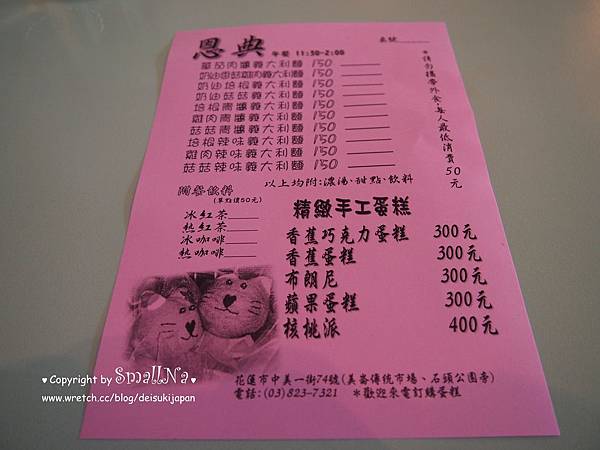 恩典 午餐 11:30-2:00
桌號
蕃茄肉醬義大利麵 150
奶油甜菇雞肉義大利麵 150
奶油培根義大利麵 150
奶油菇菇義大利麵 150
培根青醬義大利麵 150
雞肉青醬義大利麵 150
菇菇青醬義大利麵 150
培根辣味義大利麵 150
雞肉辣味義大利麵 150
菇菇辣味義大利麵 150
以上均附:濃湯、甜點、飲料
*請勿攜帶外食,每人最低消費50元
附餐飲料
(單點價50元)
冰紅茶
熱紅茶
冰咖啡
熱咖啡
精緻手工蛋糕
香蕉巧克力蛋糕 300元
香蕉蛋糕 300元
布朗尼 300元
蘋果蛋糕 300元
核桃派 400元
花蓮市中美一街74號(美崙傳統市場、石頭公園旁)
電話:(03)823-7321 *歡迎來電訂購蛋糕
♥Copyright by SmallNa♥
www.wretch.cc/blog/deisukijapan